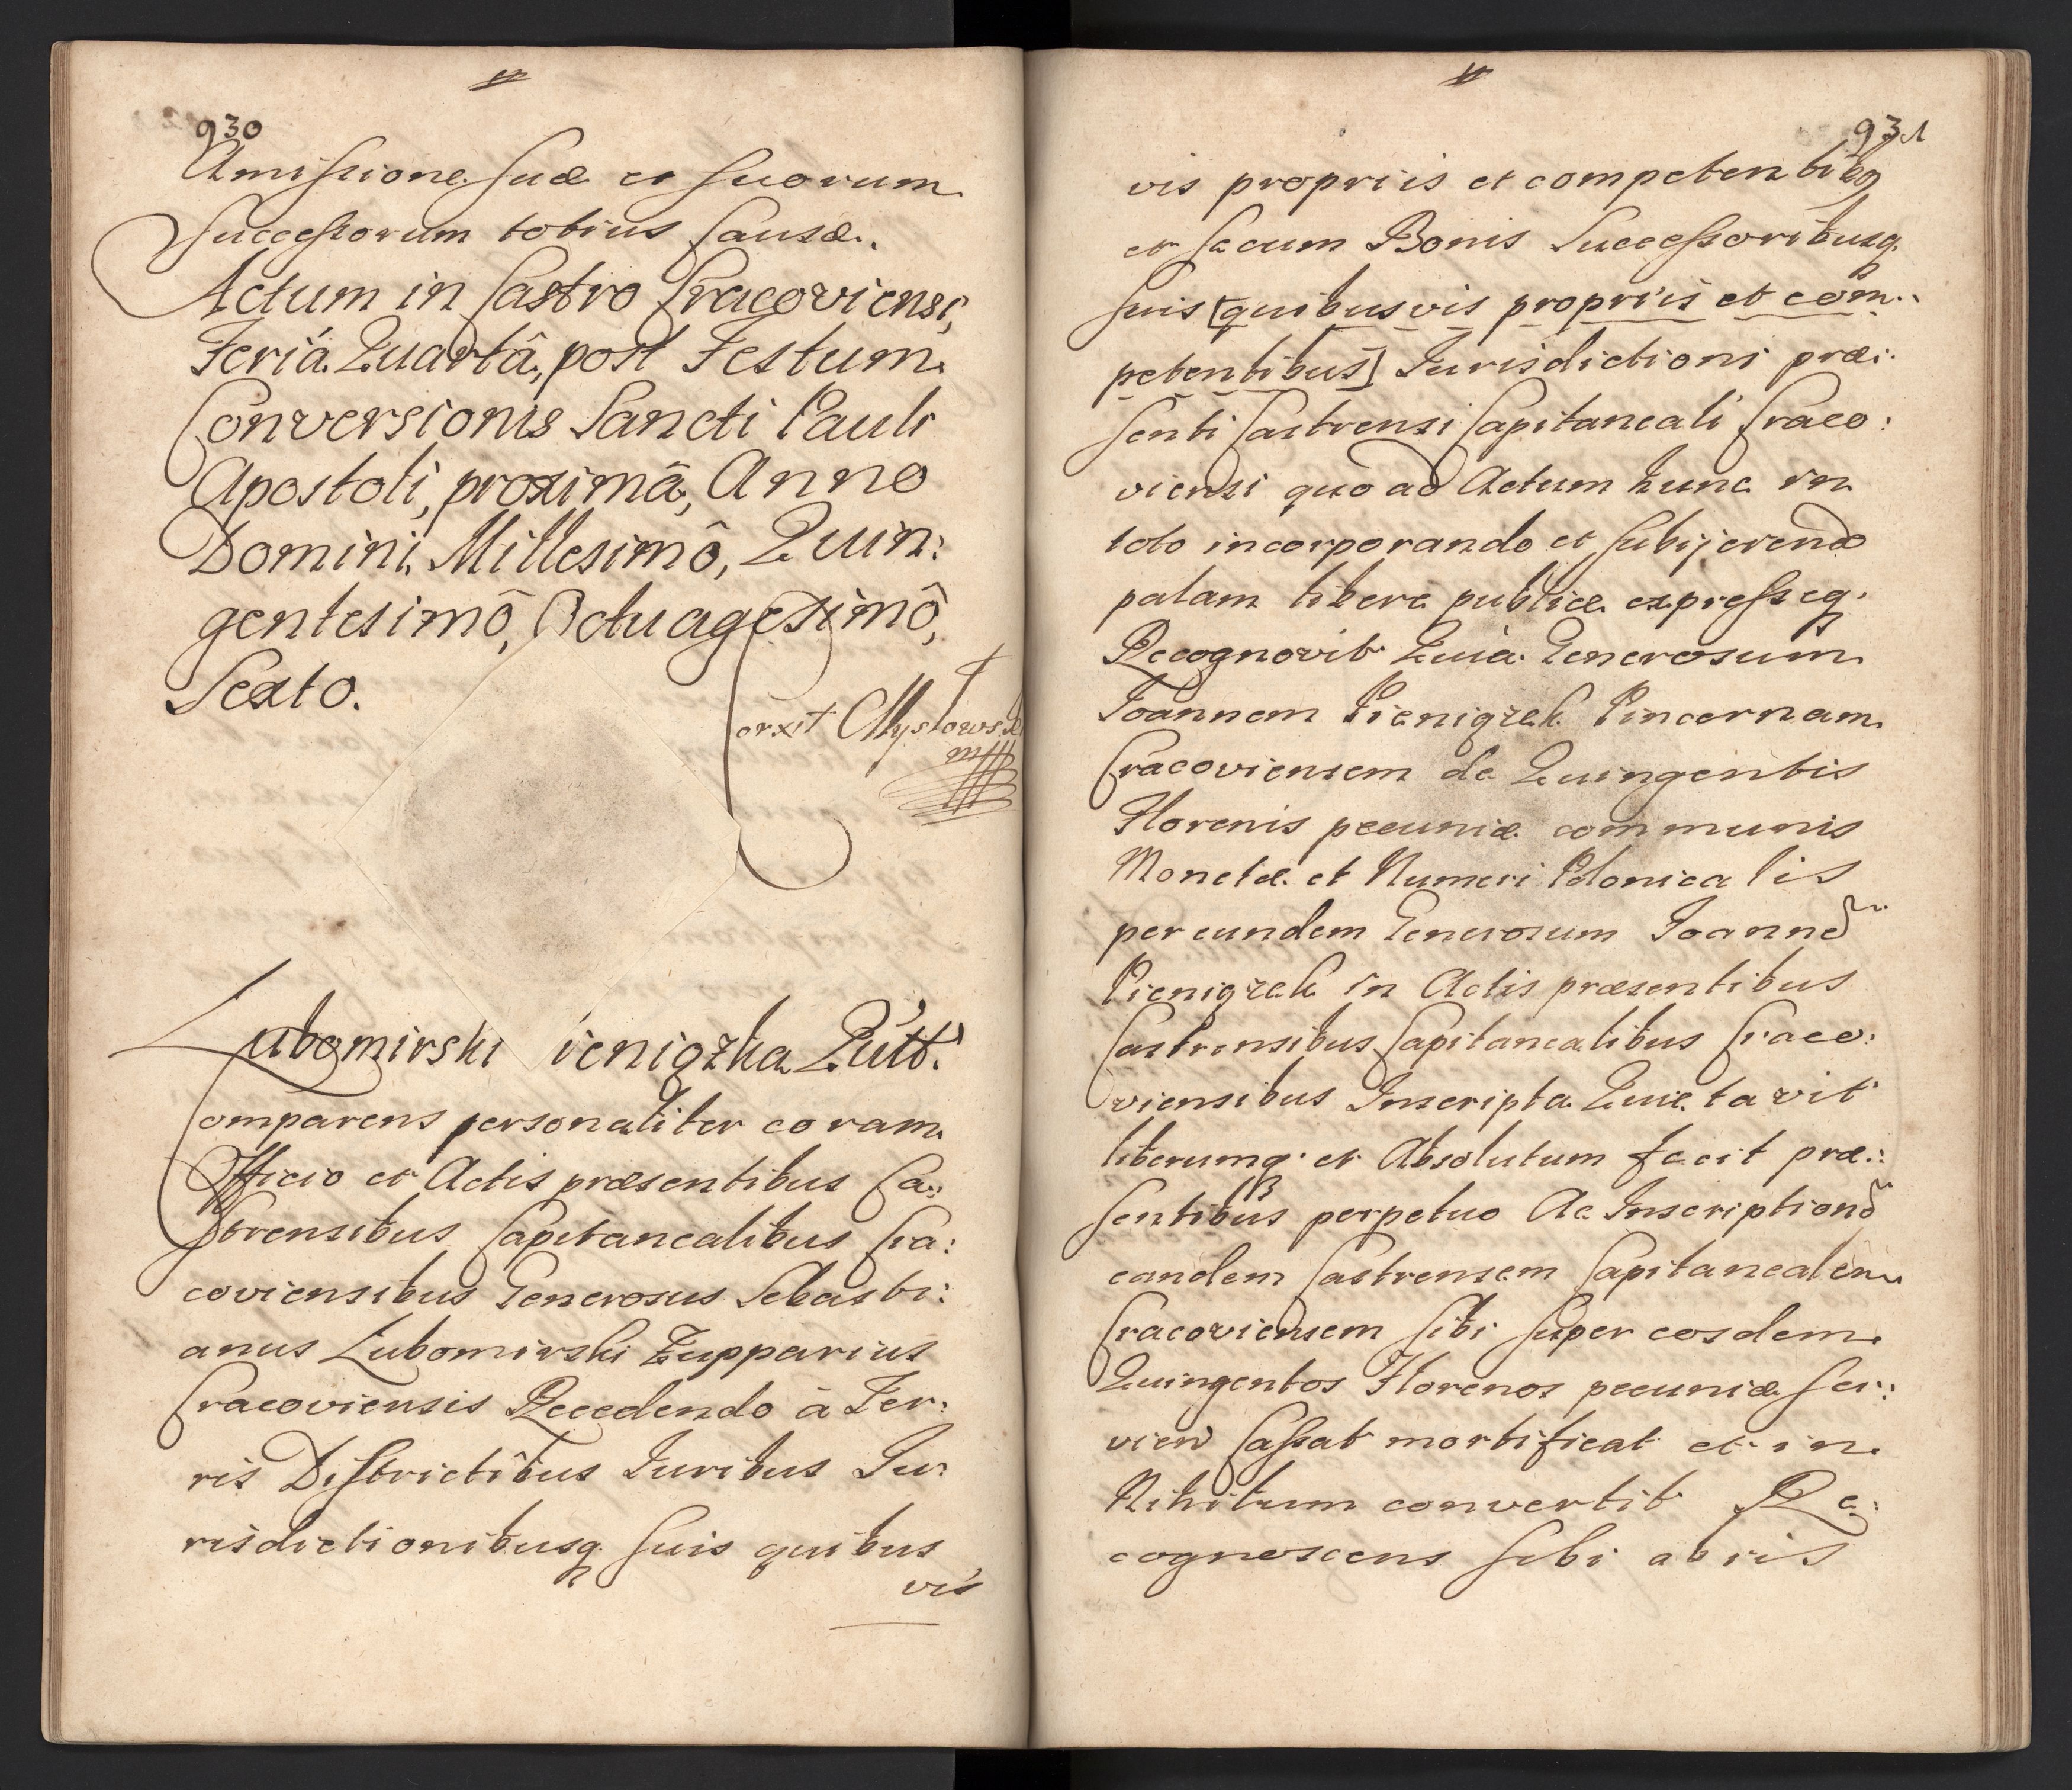 930
Amissione suæ et suorum
Successorum totius Causæ.
Actum in Castro Cracoviensi,
Feriâ Quartâ, post Festum
Conversionis Sancti Pauli
Apostoli, proximâ, Anno
Domini Millesimô, Quin:
gentesimô, Octuagesimô,
Sexto.
Corxit Mystows
Lubomirski Pieniązka Quitt.
Comparens personaliter coram
Officio et Actis præsentibus Ca:
strensibus Capitanealibus Cra:
coviensibus Generosus Sebasti:
anus Lubomirski Zupparius
Cracoviensis Recedendo à Ter:
ris Districtibus Iuribus Iu:
risdictionibusq. suis quibus
vis
931
vis propriis et competentibq
et secum Bonis Successoribusq.
suis [quibusvis propriis et com:
petentibus] Iurisdictioni præ:
senti Castrensi Capitaneali Craco:
viensi quo ad Actum hunc in
toto incorporando et subijciendo
palam libere publice expresseq.
Recognovit Quia Generosum
Joannem Pieniązek Pincernam
Cracoviensem de Quingentis
Florenis pecuniæ communis
Monetæ et Numeri Polonicalis
per eundem Generosum Joanne~
Pieniązek in Actis præsentibus
Castrensibus Capitanealibus Craco:
viensibus Inscripta Quietavit
liberumq. et Absolutum fecit præ:
sentibus perpetuo Ac Inscriptione~
eandem Castrensem Capitanealem
Cracoviensem sibi super eosdem
Quingentos Florenos pecuniæ ser:
vien Cassat mortificat et in
Nihilum convertit Re:
cognoscens sibi ab eis